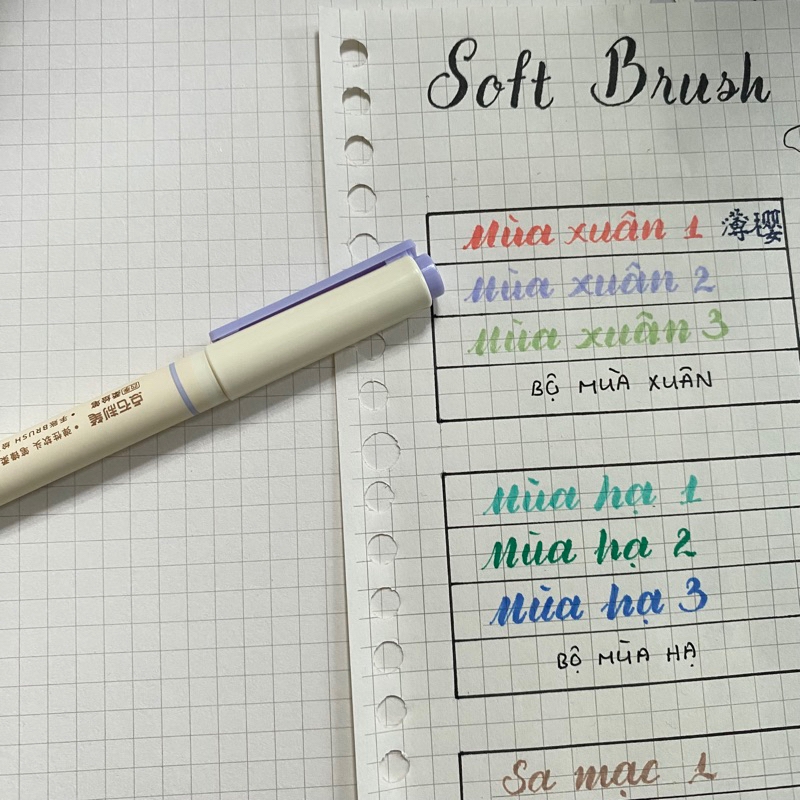 Soft Brush
Mùa xuân 1 薄樱
Mùa xuân 2
Mùa xuân 3
BỘ MÙA XUÂN
Mùa hạ 1
Mùa hạ 2
Mùa hạ 3
BỘ MÙA HẠ
Sa mạc 1
点石利笔
• 弹性软头 笔锋柔
• 手账BRUSH